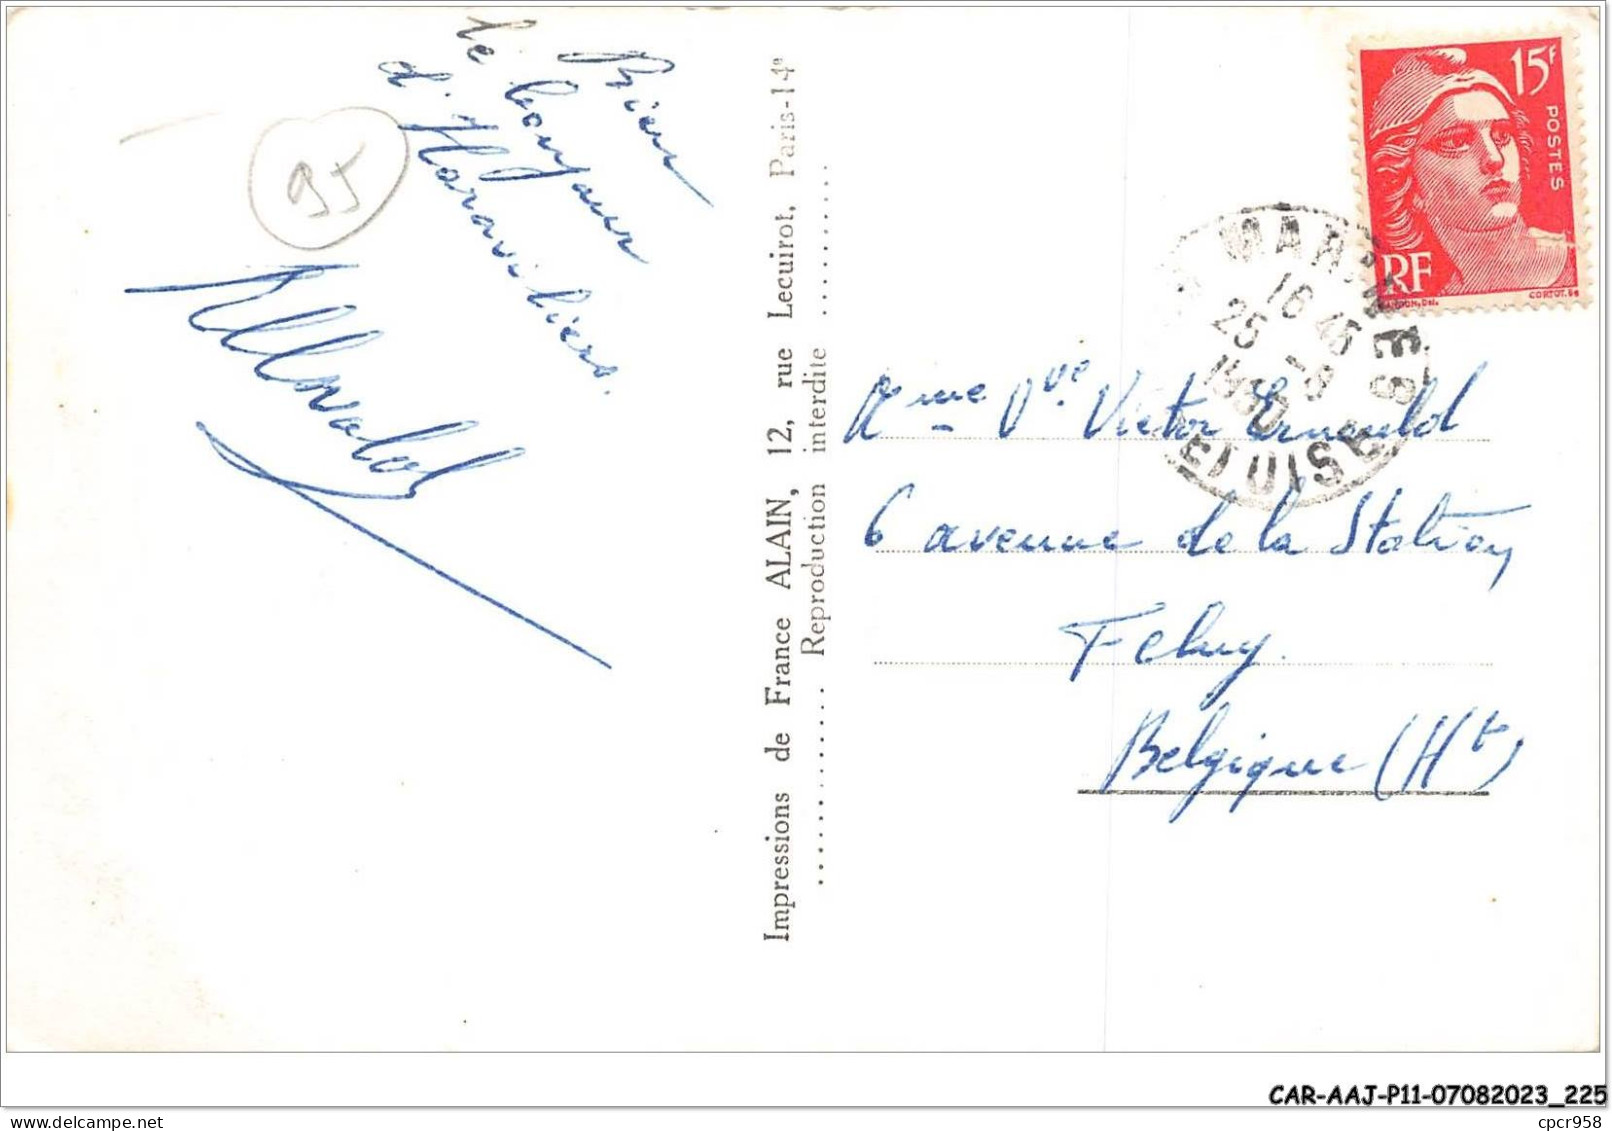 Bien
le bonjour
d'Haravilliers.
95
Impressions de France ALAIN, 12, rue Lecuirot, Paris-14e
Reproduction interdite
15F
POSTES
RF
CORTOT.Sc
MARINES
16 45
25 -9
1950
SEINE-ET-OISE
Mme Vve Victor Ernould
6 avenue de la Station
Feluy.
Belgique (Ht)
CAR-AAJ-P11-07082023_225
cpcr958